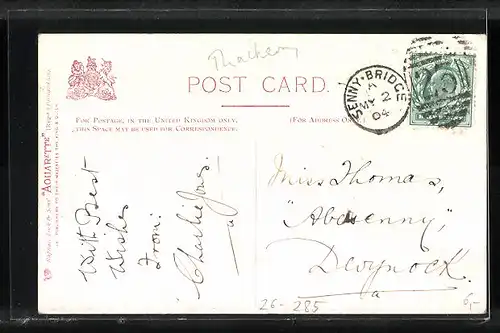 Thackery
POST CARD.
FOR POSTAGE, IN THE UNITED KINGDOM ONLY,
THIS SPACE MAY BE USED FOR CORRESPONDENCE.
(FOR ADDRESS ONLY
SENNY-BRIDGE
A
MY 2
04
Raphael Tuck & Sons' "AQUARETTE"
With Best
Wishes
From.
Charlie Jones.
Miss Thomas,
"Abersenny",
Devynock.
26-285
6,-